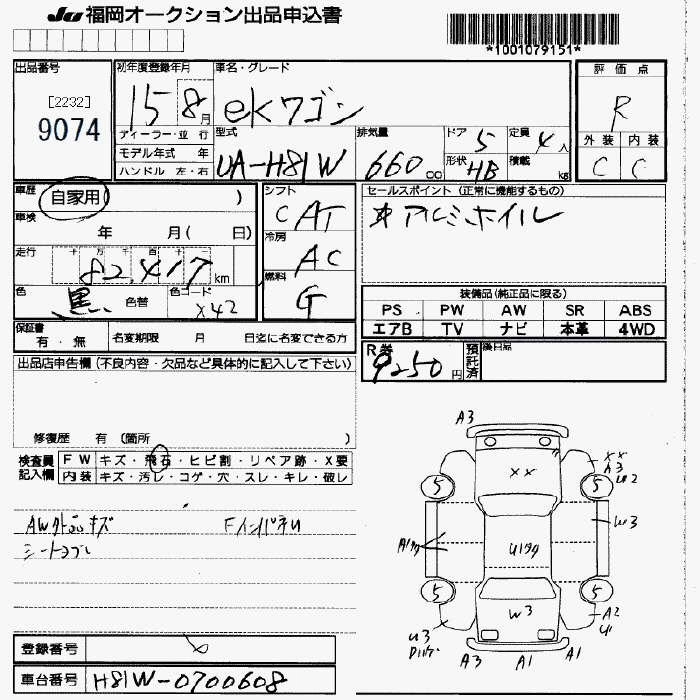 JU 福岡オークション出品申込書
*1001079151*
出品番号
[2232]
9074
初年度登録年月
15 8月
車名・グレード
eKワゴン
評価点
R
外装 内装
C C
ディーラー・並行
モデル年式 年
ハンドル 左・右
型式
UA-H81W
排気量
660 cc
ドア 5
形状 HB
定員 4人
積載 kg
車歴
自家用 )
車検
年 月( 日)
走行
十 万 千 百 十
82,417 km
色
黒 色替
色コード
X42
シフト
C AT
冷房
AC
燃料
G
セールスポイント (正常に機能するもの)
アルミホイル
装備品(純正品に限る)
PS PW AW SR ABS
エアB TV ナビ 本革 4WD
保証書
有・無
名変期限 月 日迄に名変できる方
R券
9250円
預託済
後日品
出品店申告欄(不良内容・欠品など具体的に記入して下さい)
修復歴 有 (箇所 )
検査員記入欄
FW キズ・飛石・ヒビ割・リペア跡・X要
内装 キズ・汚レ・コゲ・穴・スレ・キレ・破レ
AW外品キズ FインパネU
シートヨゴレ
A3
XX
XX
A3
U2
5 5
W3
A1
U1
5 5
W3
A2
U1
U3
A3 A1 A1
登録番号
車台番号 H81W-0700608